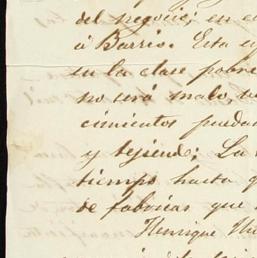 del negocio; en c
á Barrio. Esta e
en la clase pobre
no será malo, 
cimientos pueda
y tejiendo; La
tiempo hasta q
de fabricas que
Henrique